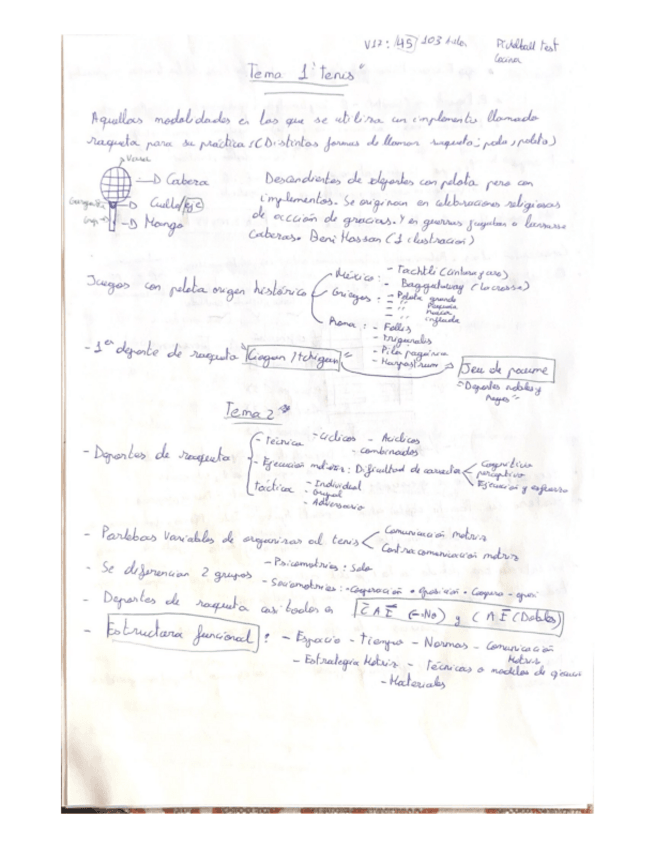 V17: 45 103
test
Tema 1: tenis
Aquellas modalidades en las que se utiliza un implemento llamado
raqueta para su práctica. (Distintas formas de llamar raqueta; pala, pelota)
Cabeza
Cuello
Grip
Mango
Descendientes de deportes con pelota pero con
implementos. Se originan en celebraciones religiosas
de acción de gracias. Y en guerras jugaban a lanzarse
cabezas. Beni Hassan (1 ilustración)
Juegos con pelota origen histórico
México: - Tachtli
- Baggataway (lacrosse)
Griegos: - Pelota grande
- " pequeña
- " hueca
- " inflada
Roma: - Follis
- trigonalis
- Pila paganica
- Harpastrum
- 1er deporte de raqueta
Jeu de paume
"Deportes nobles y
reyes"
Tema 2
- Deportes de raqueta
- Técnica - Cíclicos - Acíclicos
- combinados
- Ejecución motriz: Dificultad de
Cognitivo
perceptivo
Ejecución y esfuerzo
táctica - Individual
- Grupal
- Adversario
- Parlebas variables de organizar el tenis
Comunicación motriz
Contracomunicación motriz
- Se diferencian 2 grupos
- Psicomotrices: Solo
- Sociomotrices: - Cooperación • oposición • Coopera - oposi
- Deportes de raqueta casi todos
(Dobles)
- Estructura funcional: - Espacio - Tiempo - Normas - Comunicación
Motriz
- Estrategia Motriz - Técnicas o modelos de
- Materiales